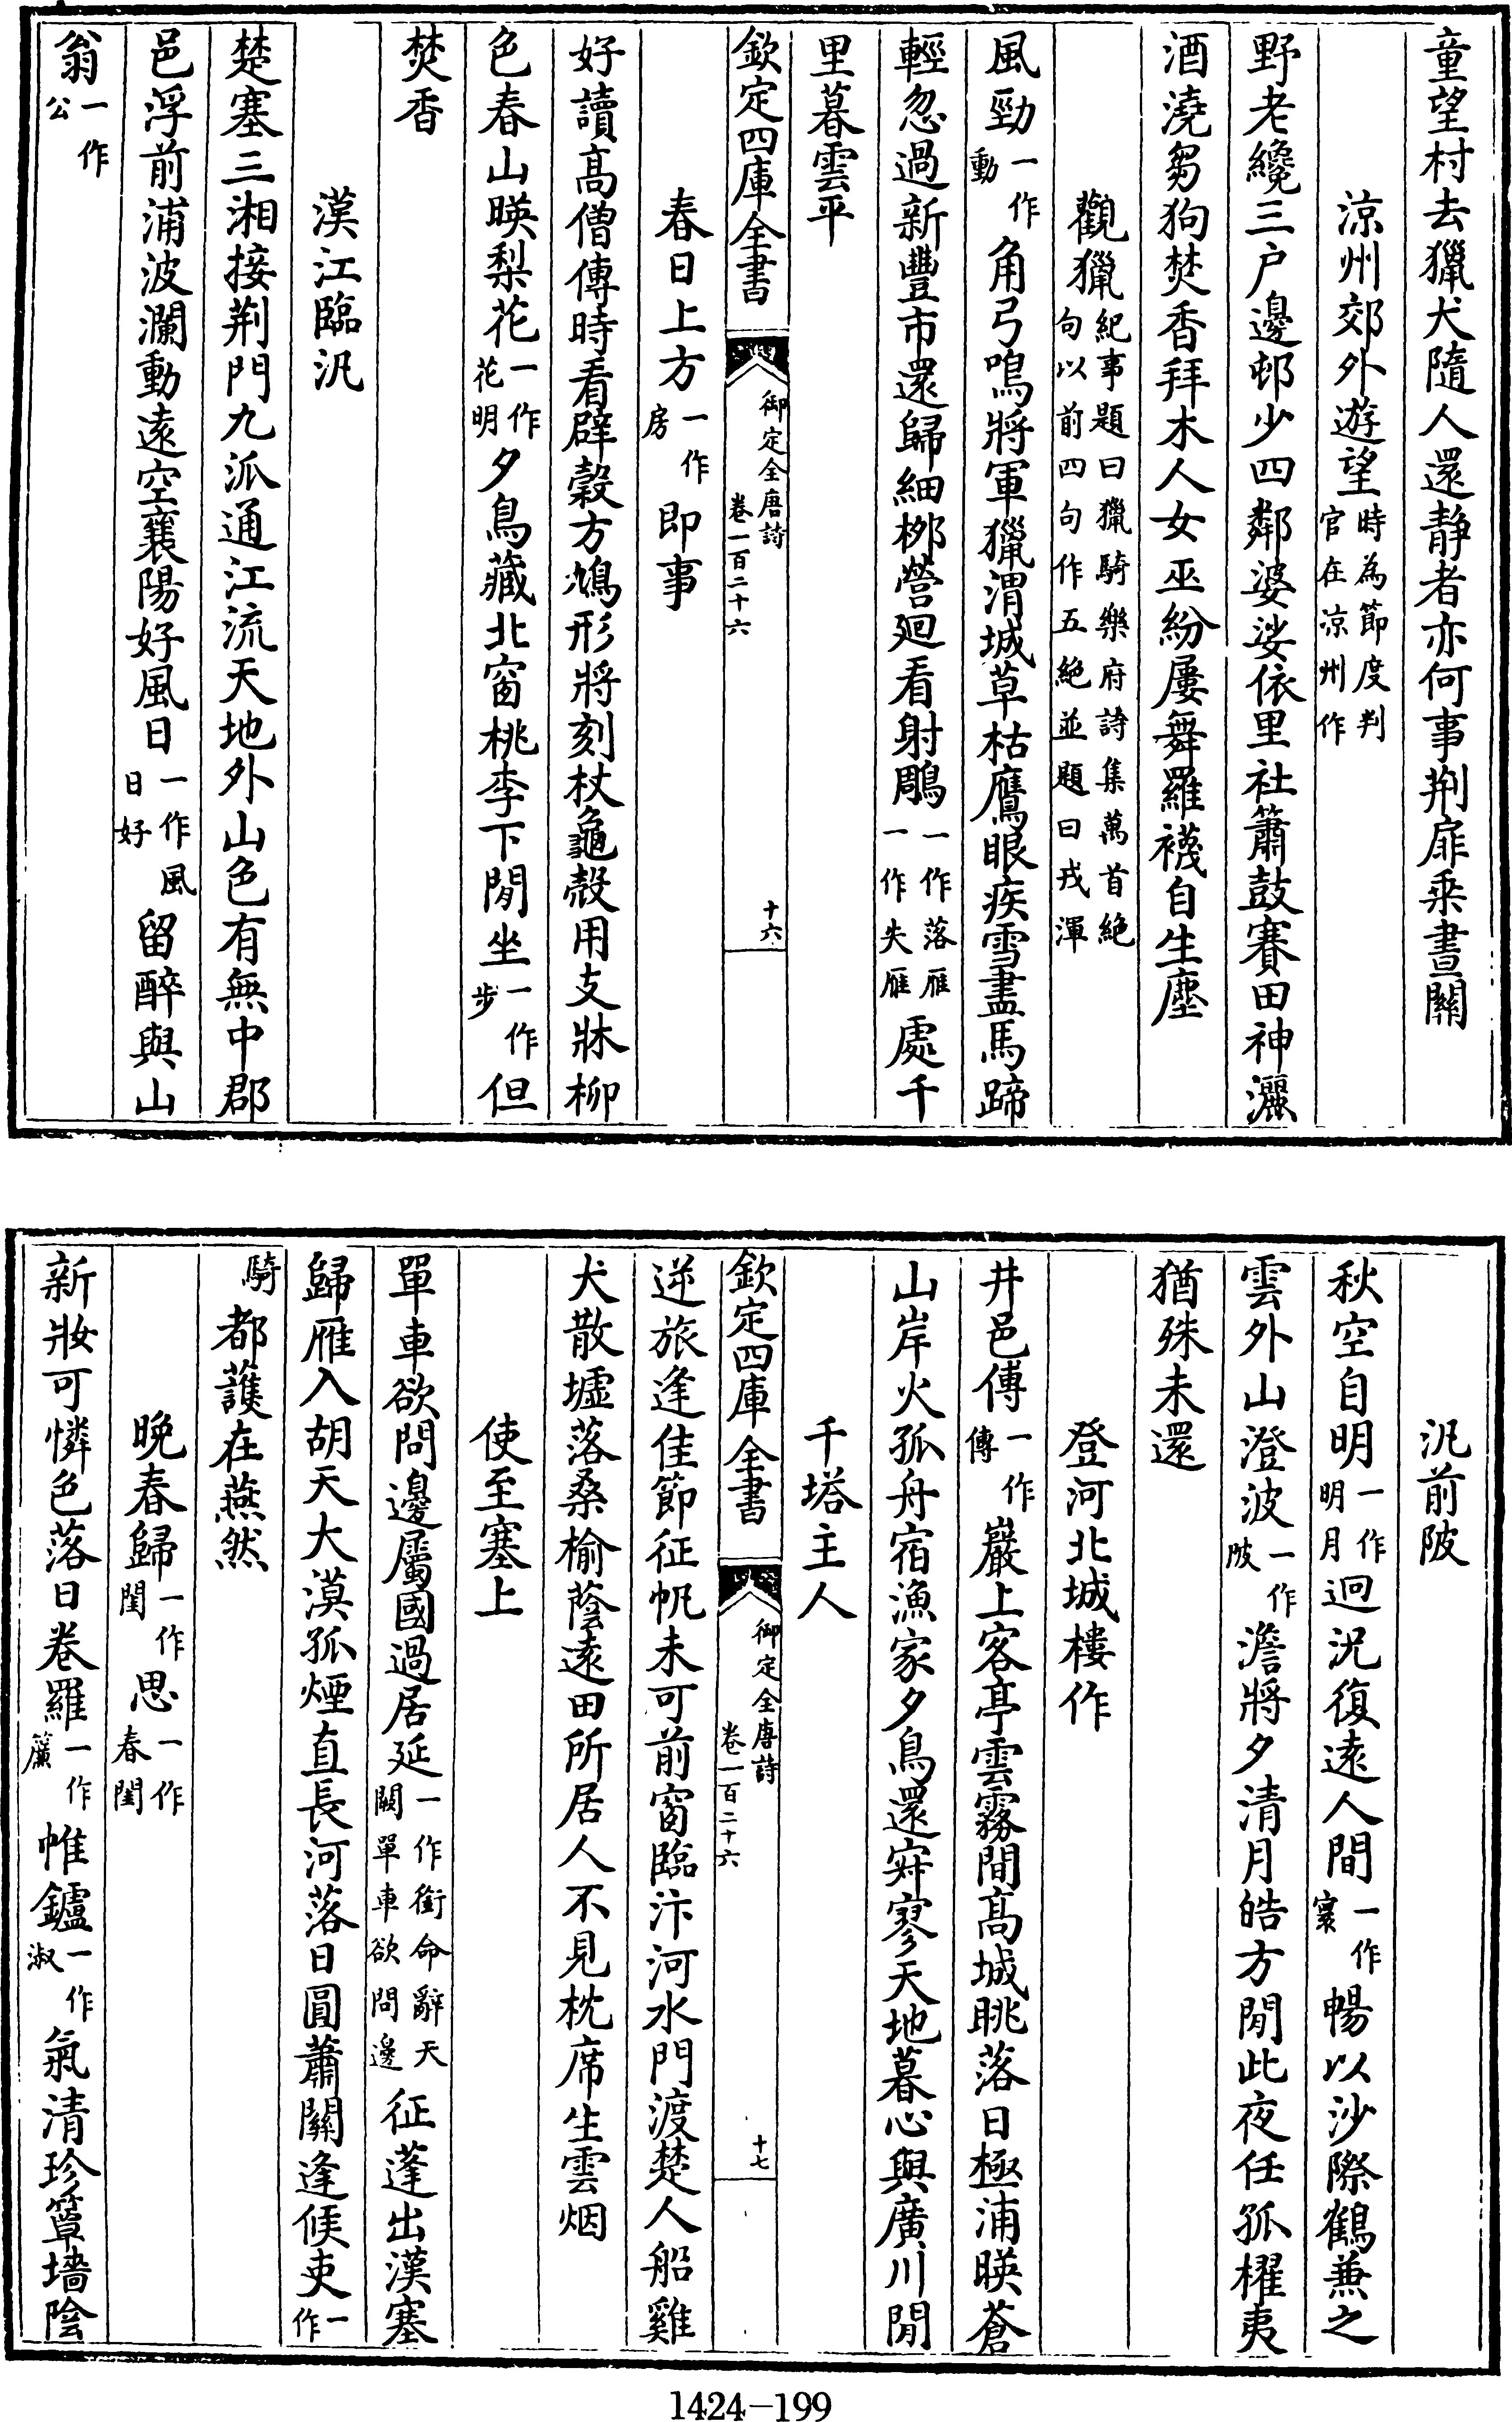 童望村去獵犬隨人還静者亦何事荆扉乘晝關
涼州郊外遊望時為節度判官在涼州作
野老纔三户邊邨少四鄰婆娑依里社簫鼓賽田神灑
酒澆芻狗焚香拜木人女巫紛屢舞羅襪自生塵
觀獵紀事題曰獵騎樂府詩集萬首絶句以前四句作五絶並題曰戎渾
風勁一作動角弓鳴將軍獵渭城草枯鷹眼疾雪盡馬蹄
輕忽過新豐市還歸細桞營廻看射鵰一作落雁一作失雁處千
里暮雲平
欽定四庫全書 御定全唐詩 卷一百二十六 十六
春日上方一作房即事
好讀髙僧傳時看辟穀方鳩形將刻杖龜殻用支牀柳
色春山暎梨花一作花明夕鳥藏北窗桃李下閒坐一作步但
焚香
漢江臨汎
楚塞三湘接荆門九派通江流天地外山色有無中郡
邑浮前浦波瀾動逺空襄陽好風日一作風日好留醉與山
翁一作公
汎前陂
秋空自明一作明月迥況復逺人間一作寰暢以沙際鶴兼之
雲外山澄波一作陂澹將夕清月皓方閒此夜任孤櫂夷
猶殊未還
登河北城樓作
井邑傅一作傳巖上客亭雲霧間高城眺落日極浦暎蒼
山岸火孤舟宿漁家夕鳥還寂寥天地暮心與廣川閒
千塔主人
逆旅逢佳節征帆未可前窗臨汴河水門渡楚人船雞
犬散墟落桑榆蔭逺田所居人不見枕席生雲烟
使至塞上
單車欲問邊屬國過居延一作銜命辭天闕單車欲問邊征蓬出漢塞
歸雁入胡天大漠孤煙直長河落日圓蕭關逢候吏一作
騎都護在燕然
晚春歸一作閨思一作春閨
新妝可憐色落日卷羅一作簾帷鑪一作淑氣清珍簟墻陰
欽定四庫全書 御定全唐詩 卷一百二十六 十七
1424-199